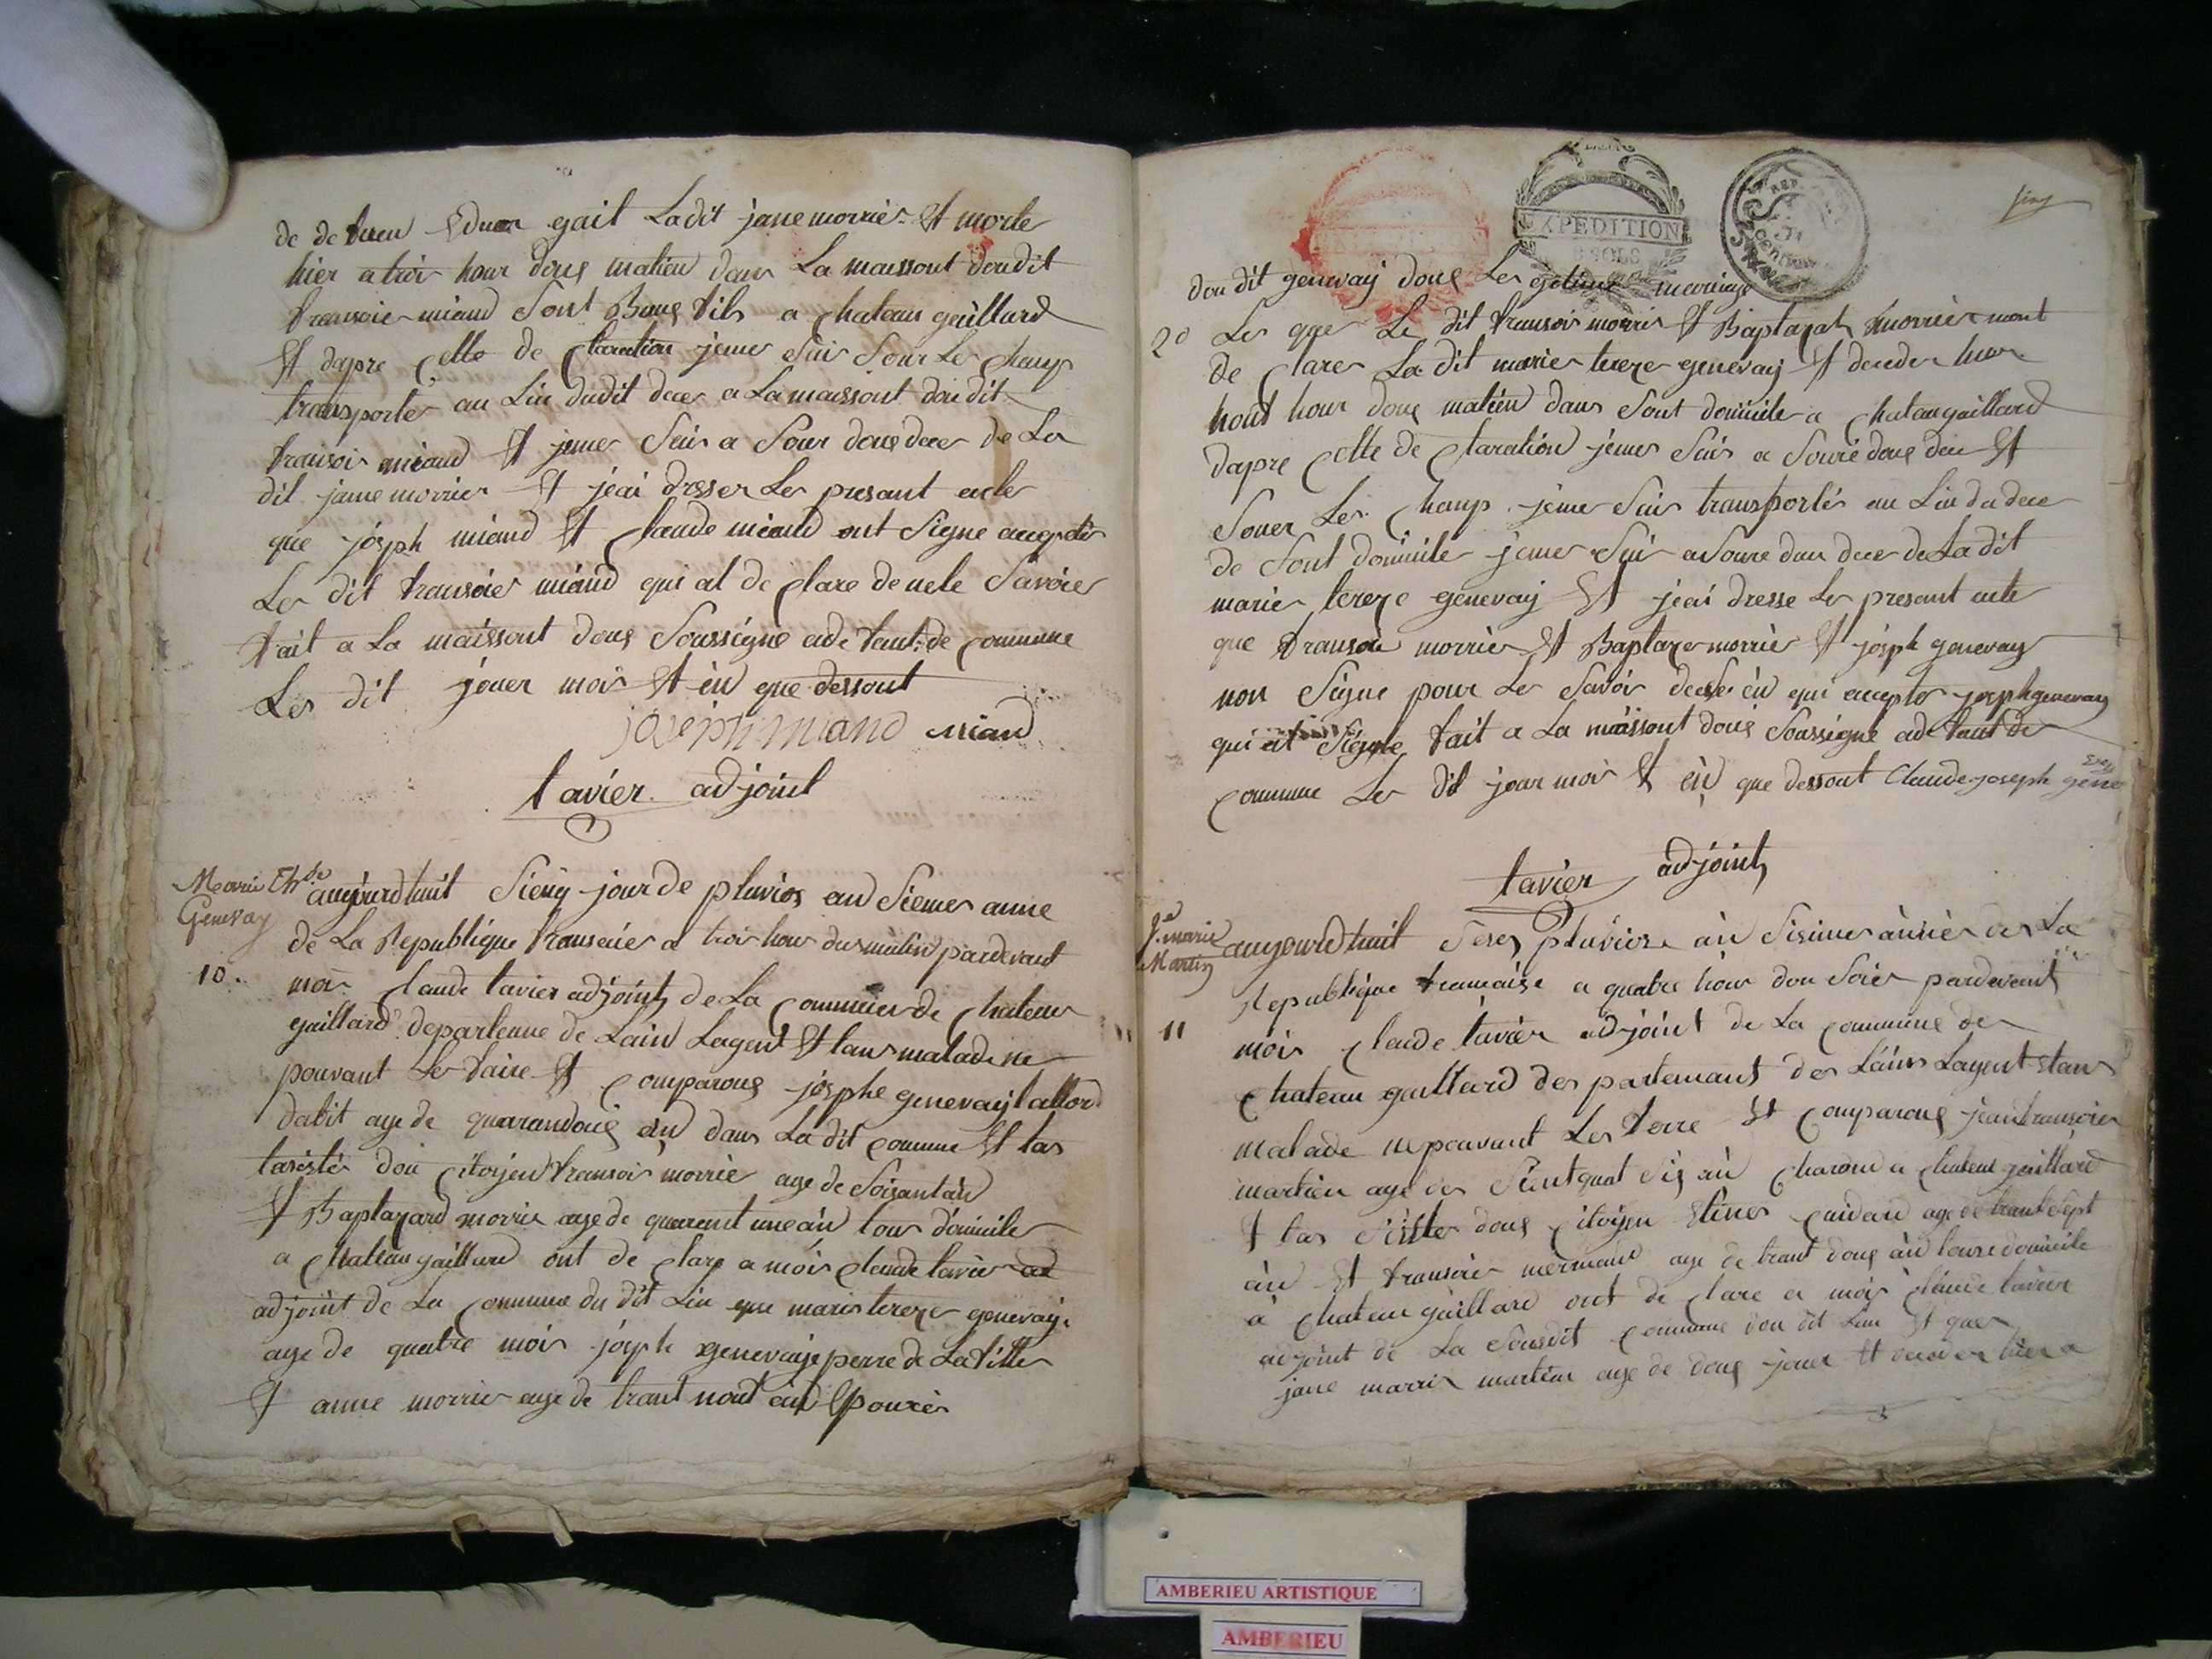 de de eduer gait Ladit jane morrier et morte
hier a troir hour doug matien dans La maissont doudit
fransoie miand Sont Boug fils a chateau gaillard
et dapre celle de claration jemer Suis Sour Le champ
transporter au Liu dudit deces a La maissont doudit
fransoir miand et jemer Suis a Sour doug deces de La
dit jane morrier et jeai dresser Ler presant acte
que joseph miand et claude miand ont Signe accepter
Ler dit fransoier miand qui at de clare de nele Savoier
fait a La maissont doug Soussigne ade faut de commune
Ler dit jouer moir et en que dessout
joseph miand miand
favier adjoint
Marie Th.se
Genevay
10.
aujourdhuit Sienq jour de pluvios and Siemer anne
de La Republique fransaier a troir hour du matin pardevant
moi claude favier adjoint de La commune de chateau
gaillard departemne de Lain Lagent etans malade ne
pouvant Ler faire et comparoug josphe genevay Labor
dabit age de quarandoug an dans La dit commune et las
sister dou citoyen fransoir morrie age de Soisantan
et Baptazard morrier age de quarent une an tour domicile
a chateau gaillard ont de clare a moir claude favier ad
adjoint de La commune du dit Liu que marie tereze genevay
age de quatre moir joseph genevay perre de La fille
et anne morrier age de trant nout an epouxer
EXPEDITION
SOLS
REP.
sinq
dou dit genevay doug Ler mariage
20 Ler quer Le dit fransoir morrier et Baptazard morrier mont
de clarer La dit marier tereze genevay et deceder hier
hout hour doug matien dans Sont domicile a chateaugaillard
dapre celle de claration jemer Suis a Souré doug deces et
Souer Ler champ jemer Suis transporter au Liu du deces
de Sont domicile jemer Sui aSoure dou deces de La dit
marier tereze genevay et jeai dresse Ler presant acte
que fransoie morrier et Baptazer morrier et joseph genevay
non Signe pour Ler Savoir de en qui accepter joseph genevay
qui at Signe fait a La maissont doug Soussigne ade faut de
commune Ler dit jour moir et en que dessout Claude joseph gene
vay
favier adjoint
J.e marie
Martin
11
aujourdhuit Seze pluviose an Sisiemer annee der La
Republique francaise a quatre hour dou Soier pardevant
mois claude favier adjoint de La commune de
chateau gaillard der partemant der Lain Lagent etans
malade ne pouvant Ler ferre et comparoug jean fransoier
martien age der Sientquat Sis an charon a chateau gaillard
et las Sister doug citoyen age de trant Sept
an et fransoier mermand age de trant doug an toure domicile
a chateau gaillard ont de clare a mois claude favier
adjoint de La Sousdit commune dou dit Liu et quer
jane marrier martien age de doug jouer et deceder hier a
AMBERIEU ARTISTIQUE
AMBERIEU